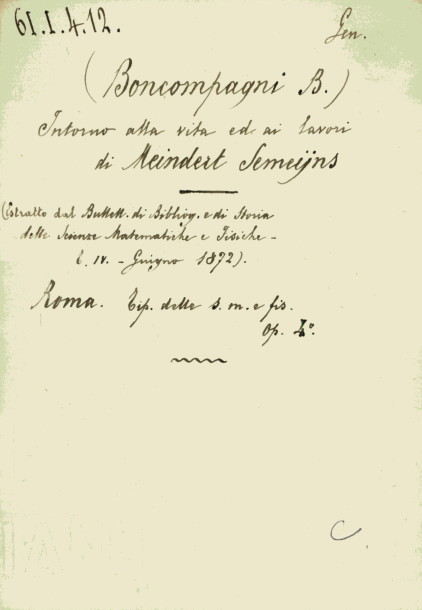 61.1.4.12.
Gen.
(Boncompagni B.)
Intorno alla vita ed ai lavori
di Meindert Semeijns
(Estratto dal Bullett. di Bibliog. e di Storia
delle Scienze Matematiche e Fisiche -
t. IV. - Giugno 1872).
Roma. Tip. delle s. m. e fis.
Op. 4°.
C